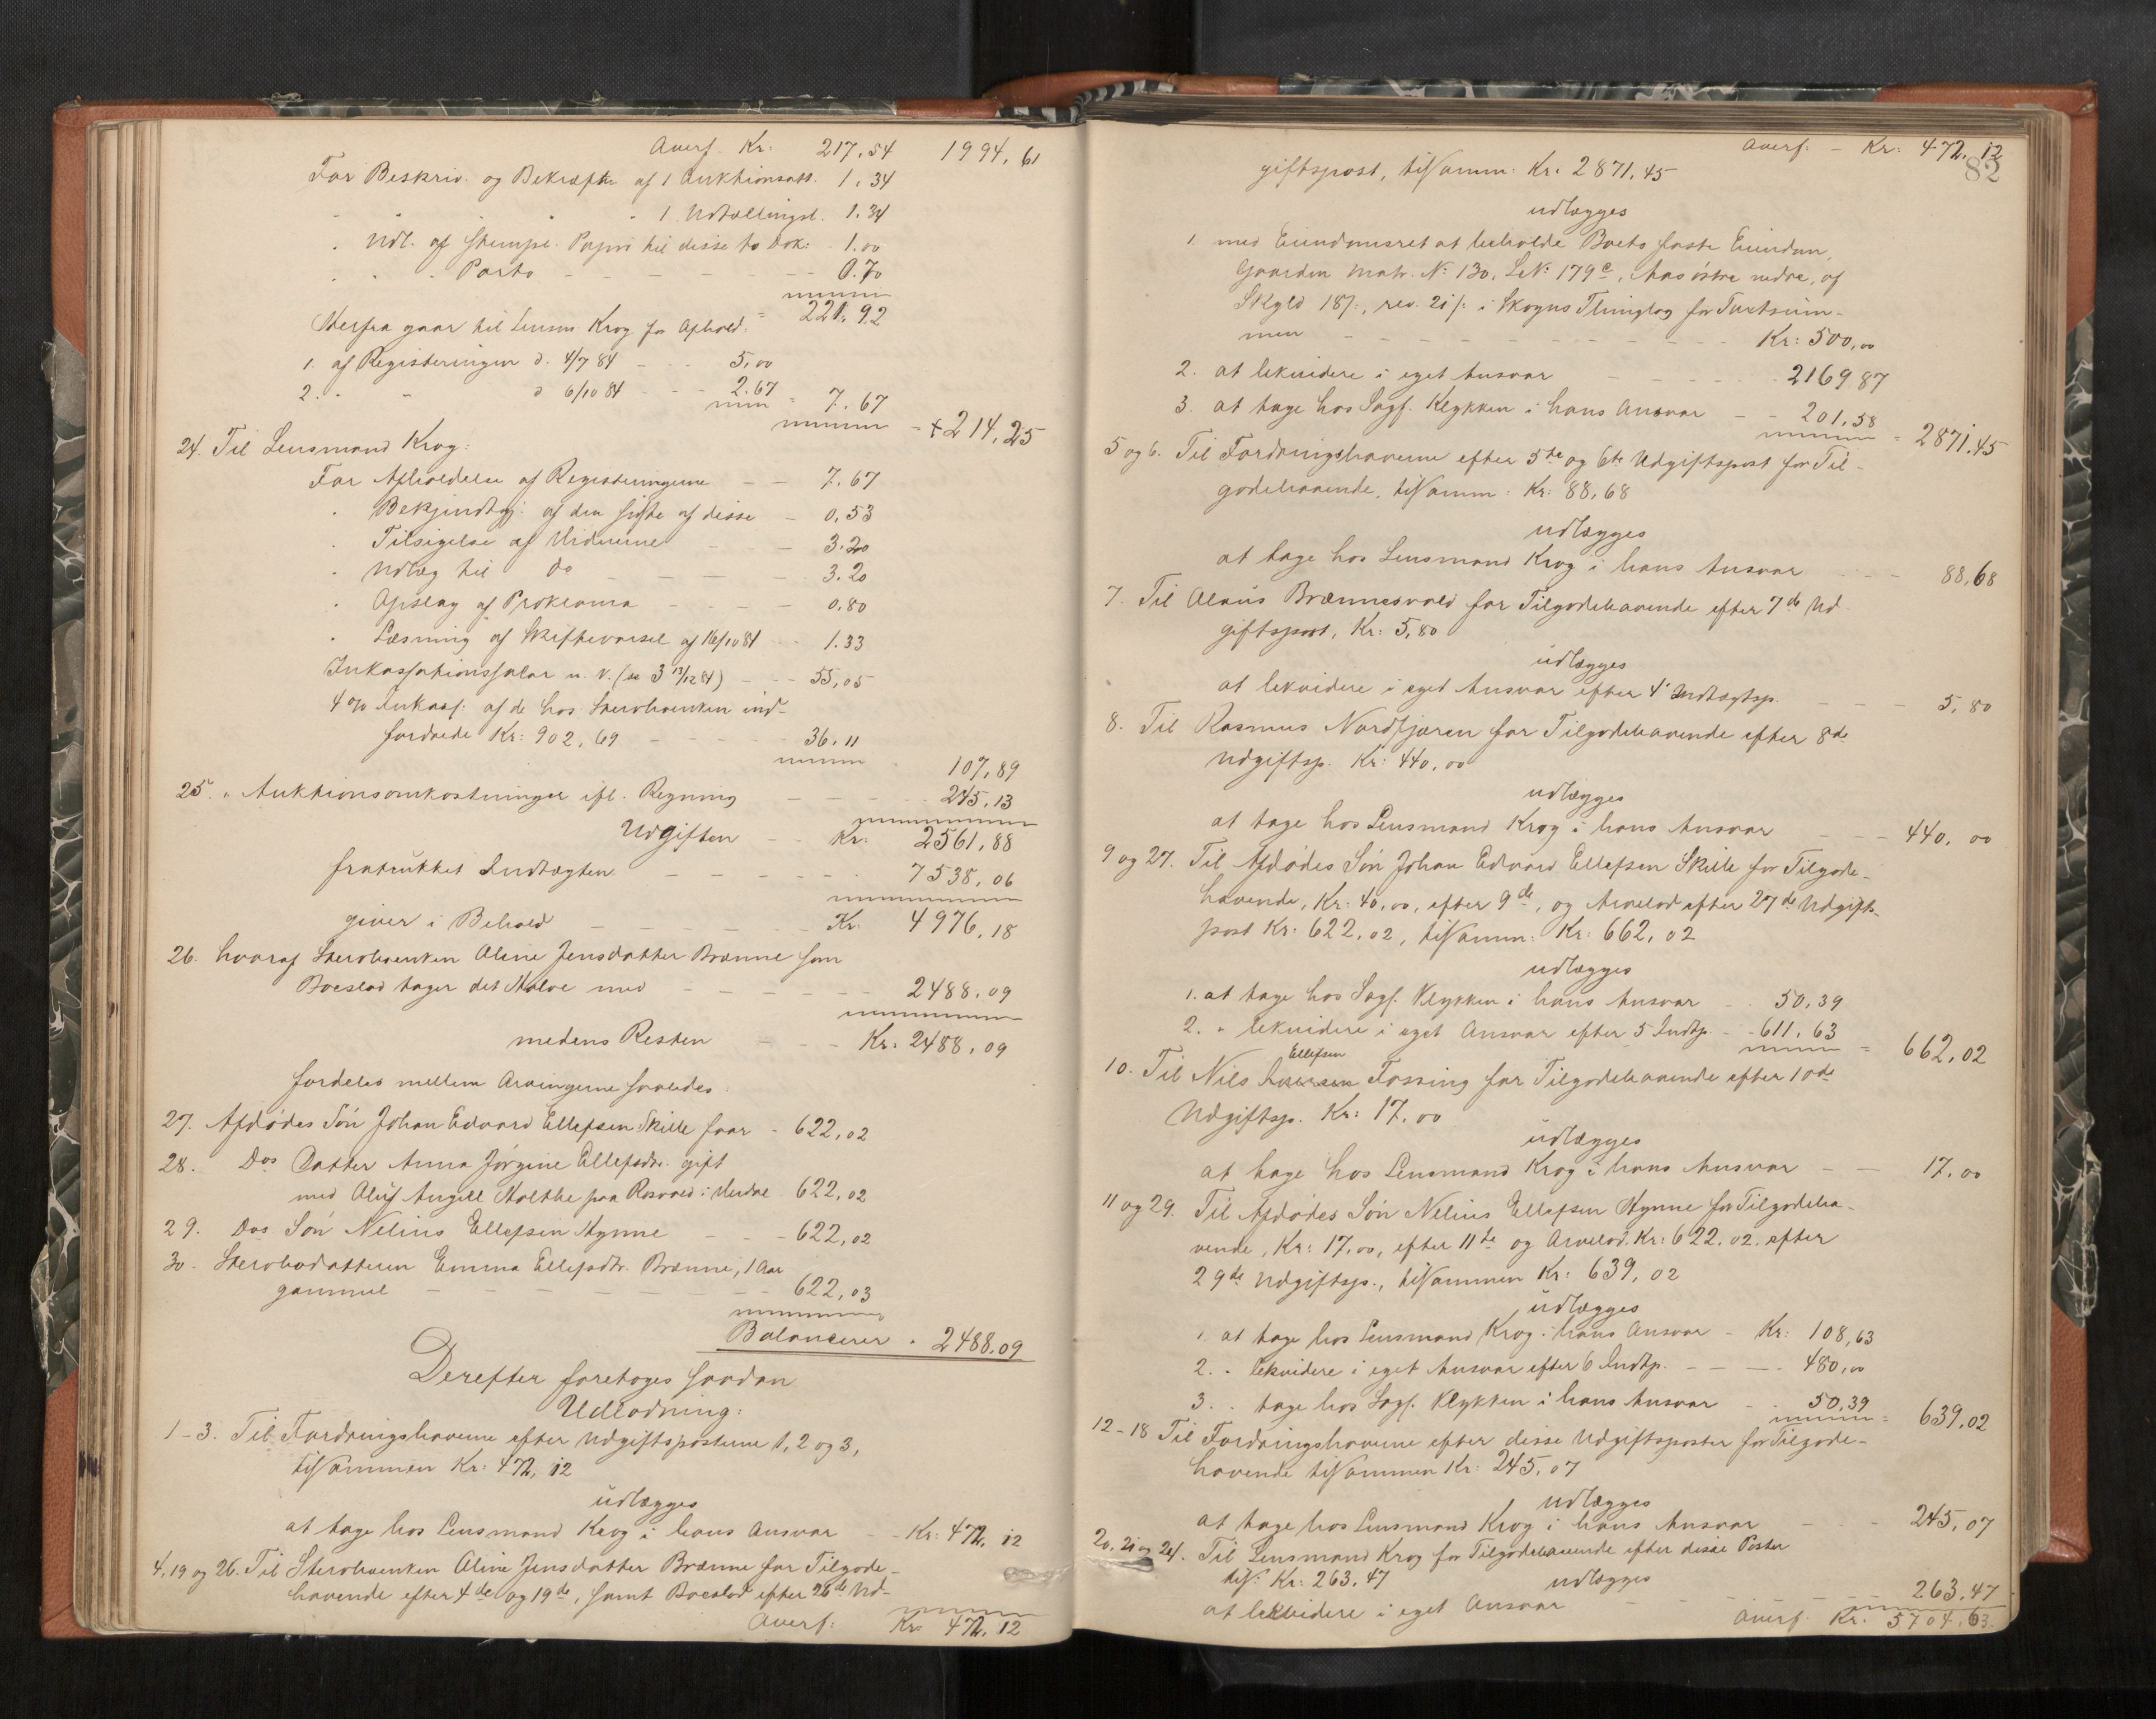 Averf. Kr: 217,54 1994,61
For Beskriv. og Bekræft. af 1 Auktionsatt. 1,34
" " " 1 Udtællingsl. 1.34
" Udl. af Stempl. Papir til disse to Dok: 1.00
" " " Porto 0.70
= 221,92
Herfra gaar til Lensm. Krog for Aphold.
1. af Registeringen d. 4/7 84 5,00
2. " " d 6/10 84 2.67 = 7.67
214,25
24. Til Lensmand Krog:
For Afholdelse af Registeringerne 7.67
" Bekjendtg: af den sidste af disse 0,53
" Tilsigelse af Vidnerne 3.20
" Udlæg til do 3.20
" Opslag af Proklama 0,80
" Læsning af Skiftevarsel af 16/10 84 1.33
Inkassationssalær m. V. (se 3 13/12 84) 55,05
4 % Inkass: af de hos Stervboenken ind-
fordrede Kr: 902,69 36.11
107,89
25. " Auktionsomkostninger ifl. Regning 245,13
Udgiften Kr: 2561,88
fratrukket Indtægten 7538,06
giver i Behold Kr. 4976,18
26. hvoraf Stervboenken Aline Jensdatter Brænne som
Boeslod tager det Halve med 2488,09
medens Resten Kr: 2488,09
fordeles mellem Arvingerne saaledes:
27. Afdødes Søn Johan Edvard Ellefsen Skille faar 622,02
28. Dos Datter Anna Jørgine Ellefsdtr. gift
med Oluf Angell Holthe paa Rosvold i Merdal 622,02
29. Dos Søn Nelius Ellefsen Hynne 622,02
30. Stervbodatteren Emma Ellefsdtr. Brænne, 1 Aar
gammel 622,03
Balancerer " 2488.09
Derefter foretoges saadan
Udlodning:
1-3. Til Fordringshaverne efter Udgiftsposterne 1, 2 og 3,
tilsammen Kr: 472,12
udlægges
at tage hos Lensmand Krog i hans Ansvar Kr: 472,12
4, 19 og 26. Til Stervboenken Aline Jensdatter Brænne for Tilgode-
havende efter 4de og 19de, samt Boeslod efter 26de Ud-
Averf: Kr. 472,12
Averf: - Kr: 472,12
82
giftspost, tilsamm: Kr. 2871,45
udlægges
1. med Eiendomsret at beholde Boets faste Eiendom,
Gaarden Matr. No 130, LNo 179c, Aas østre nedre, af
Skyld 18/:, rev. 21/: i Skogns Thinglag for Taxtsum-
men Kr: 500,00
2. at likvidere i eget Ansvar 2169,87
3. at tage hos Sagf. Klykken i hans Ansvar 201,58 = 2871,45
5 og 6. Til Fordringshaverne efter 5te og 6te Udgiftspost for Til-
godehavende, tilsamm: Kr: 88,68
udlægges
at tage hos Lensmand Krog i hans Ansvar 88,68
7. Til Olaus Brænnesvald for Tilgodehavende efter 7de Ud-
giftspost, Kr: 5,80
udlægges
at likvidere i eget Ansvar efter 4' Indtægtsp. 5,80
8. Til Rasmus Nordfjæren for Tilgodehavende efter 8de
Udgiftsp. Kr: 440,00
udlægges
at tage hos Lensmand Krog i hans Ansvar 440,00
9 og 27. Til Afdødes Søn Johan Edvard Ellefsen Skille for Tilgode-
havende, Kr: 40,00, efter 9de, og Arvelod efter 27de Udgifts-
post Kr: 622,02, tilsamm: Kr: 662,02
udlægges
1. at tage hos Sagf. Klykken i hans Ansvar 50,39
2. " likvidere i eget Ansvar efter 5 Indtp. 611,63 = 662,02
10. Til Nils Ellefsen Fossing for Tilgodehavende efter 10de
Udgiftsp. Kr: 17,00
udlægges
at tage hos Lensmand Krog i hans Ansvar 17,00
11 og 29. Til Afdødes Søn Nelius Ellefsen Hynne for Tilgodeha-
vende, Kr: 17,00, efter 11te og Arvelod Kr: 622,02 efter
29de Udgiftsp., tilsammen Kr: 639,02
udlægges
1 at tage hos Lensmand Krog i hans Ansvar - Kr: 108,63
2. " likvidere i eget Ansvar efter 6 Indtp. 480,00
3. " tage hos Sagf. Klykken i hans Ansvar 50,39 = 639,02
12-18 Til Fordringshaverne efter disse Udgiftsposter for Tilgode-
havende tilsammen Kr: 245,07
udlægges
at tage hos Lensmand Krog i hans Ansvar 245,07
20, 21 og 24. Til Lensmand Krog for Tilgodehavende efter disse Poster
tils: Kr: 263,47
udlægges
at likvidere i eget Ansvar 263,47
Averf. Kr. 5704,63.